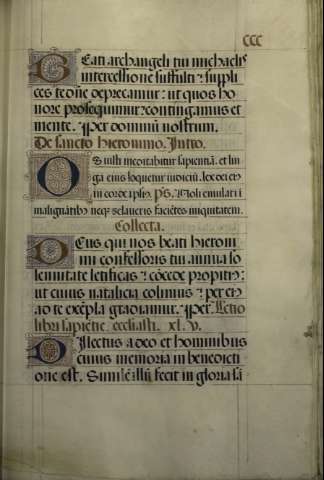 CCC
Beati archangeli tui michaelis
intercessione suffulti: suppli
ces te dñe deprecamur: ut quos ho
nore prosequimur: contingamus et
mente. Per dominũ nostrum.
De sancto hieronimo. Intro.
Os iusti meditabitur sapientiã. et lin
gua eius loquetur iudiciũ. lex dei eiꝰ
in corde ipsiꝰ. Ps. Noli emulari ĩ
malignãtibꝰ neqꝫ zelaveris faciẽtes iniquitatem.
Collecta.
Deus qui nos beati hieroni
mi confessoris tui annua so
lennitate letificas: cõcede propitiꝰ:
ut cuius natalicia colimus: per eiꝰ
ad te exẽpla gradiamur. Per. Lectio
libri sapiẽtie. ecclĩasti. xl.v.
Dilectus a deo et hominibus
cuius memoria in benedicti
one est. Similẽ illũ fecit in gloria sã